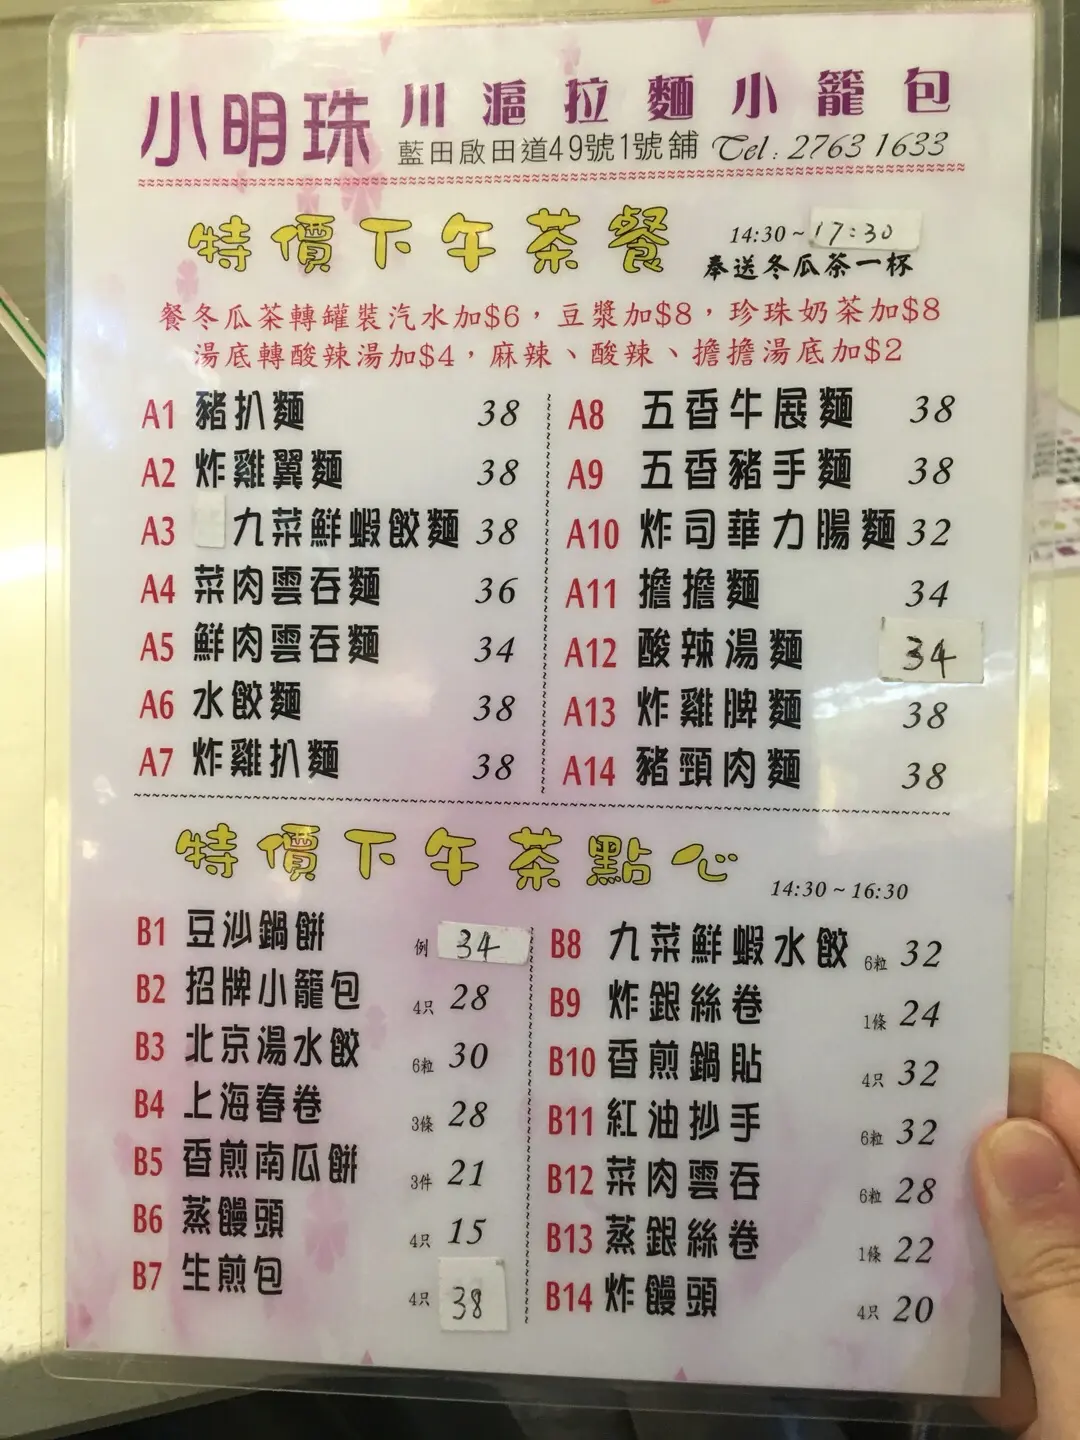 小明珠 川滬拉麵小籠包
藍田啟田道49號1號舖 Tel : 2763 1633
特價下午茶餐 14:30~17:30
奉送冬瓜茶一杯
餐冬瓜茶轉罐裝汽水加$6，豆漿加$8，珍珠奶茶加$8
湯底轉酸辣湯加$4，麻辣、酸辣、擔擔湯底加$2
A1 豬扒麵 38
A2 炸雞翼麵 38
A3 九菜鮮蝦餃麵 38
A4 菜肉雲吞麵 36
A5 鮮肉雲吞麵 34
A6 水餃麵 38
A7 炸雞扒麵 38
A8 五香牛展麵 38
A9 五香豬手麵 38
A10 炸司華力腸麵 32
A11 擔擔麵 34
A12 酸辣湯麵 34
A13 炸雞脾麵 38
A14 豬頸肉麵 38
特價下午茶點心 14:30~16:30
B1 豆沙鍋餅 例 34
B2 招牌小籠包 4只 28
B3 北京湯水餃 6粒 30
B4 上海春卷 3條 28
B5 香煎南瓜餅 3件 21
B6 蒸饅頭 4只 15
B7 生煎包 4只 38
B8 九菜鮮蝦水餃 6粒 32
B9 炸銀絲卷 1條 24
B10 香煎鍋貼 4只 32
B11 紅油抄手 6粒 32
B12 菜肉雲吞 6粒 28
B13 蒸銀絲卷 1條 22
B14 炸饅頭 4只 20